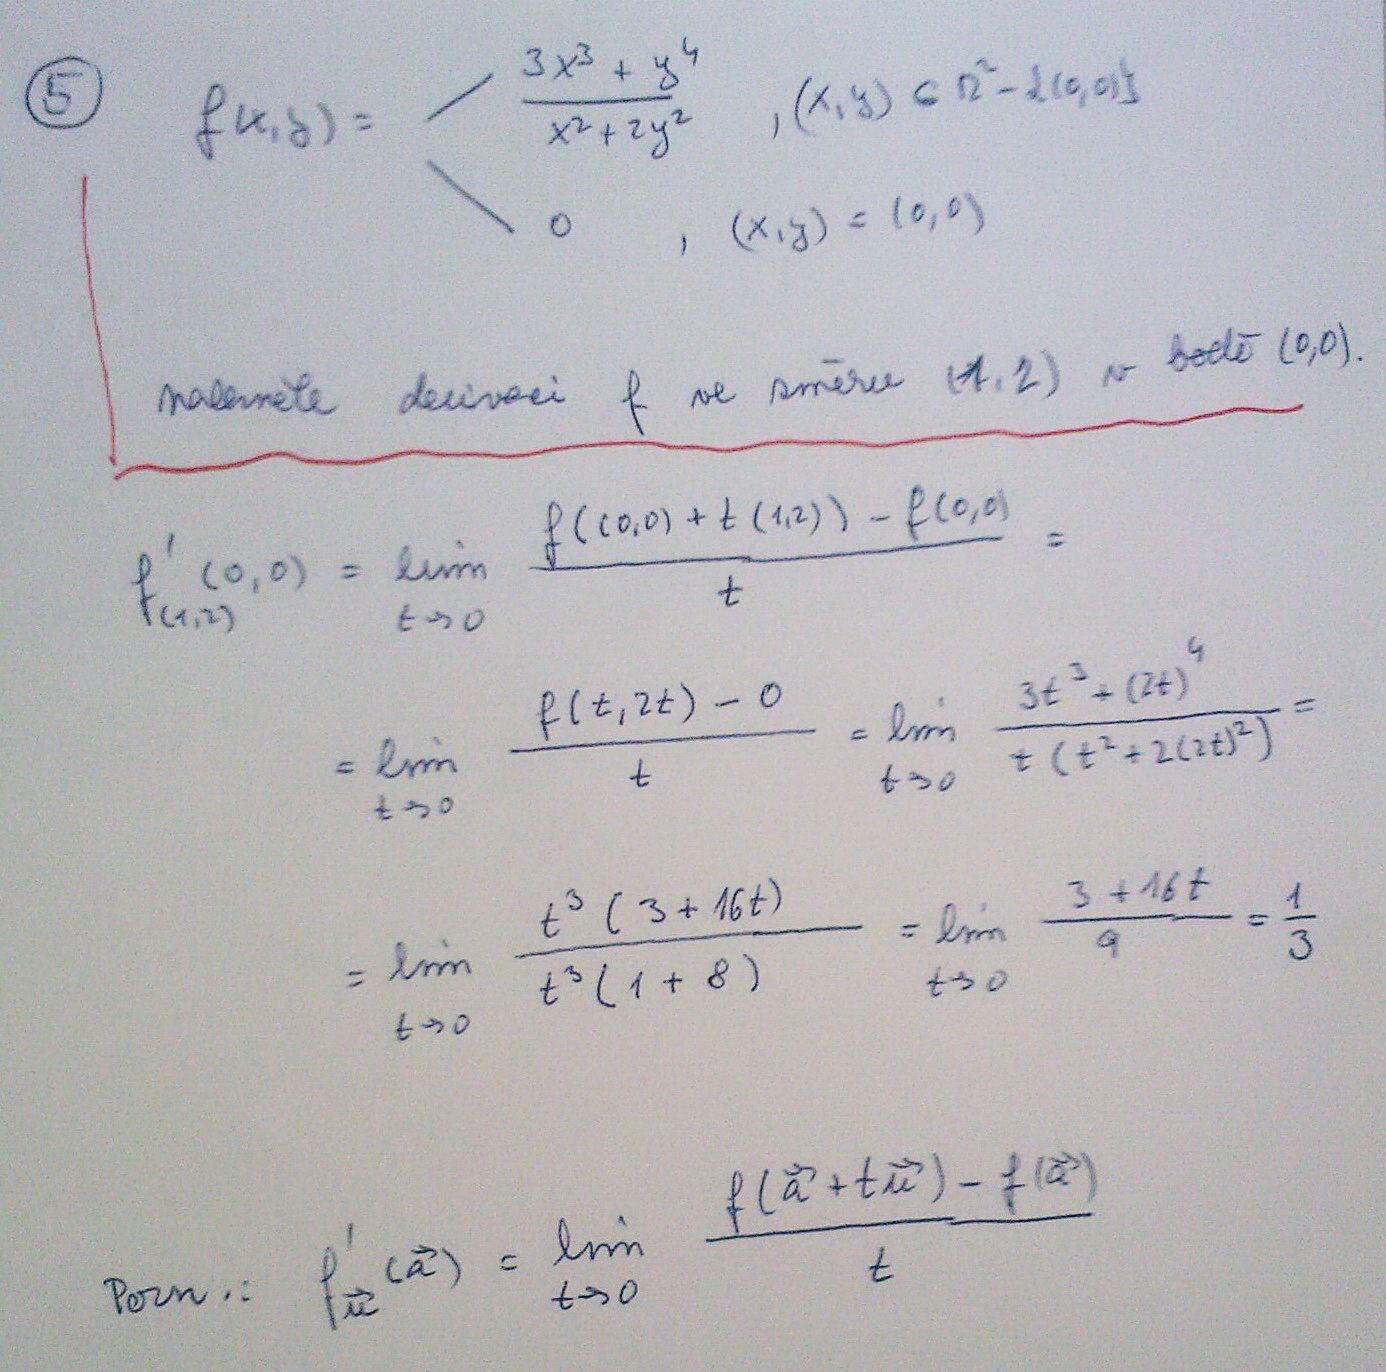 5
f(x,y) = 3x³ + y⁴ / x² + 2y² , (x,y) ∈ R² - {(0,0)}
0 , (x,y) = (0,0)
nalezněte derivaci f ve směru (1,2) v bodě (0,0).
f'(1,2) (0,0) = lim t→0 f((0,0) + t(1,2)) - f(0,0) / t =
= lim t→0 f(t,2t) - 0 / t = lim t→0 3t³ + (2t)⁴ / t(t² + 2(2t)²) =
= lim t→0 t³(3 + 16t) / t³(1 + 8) = lim t→0 3 + 16t / 9 = 1/3
Pozn.: f'u⃗ (a⃗) = lim t→0 f(a⃗ + tu⃗) - f(a⃗) / t